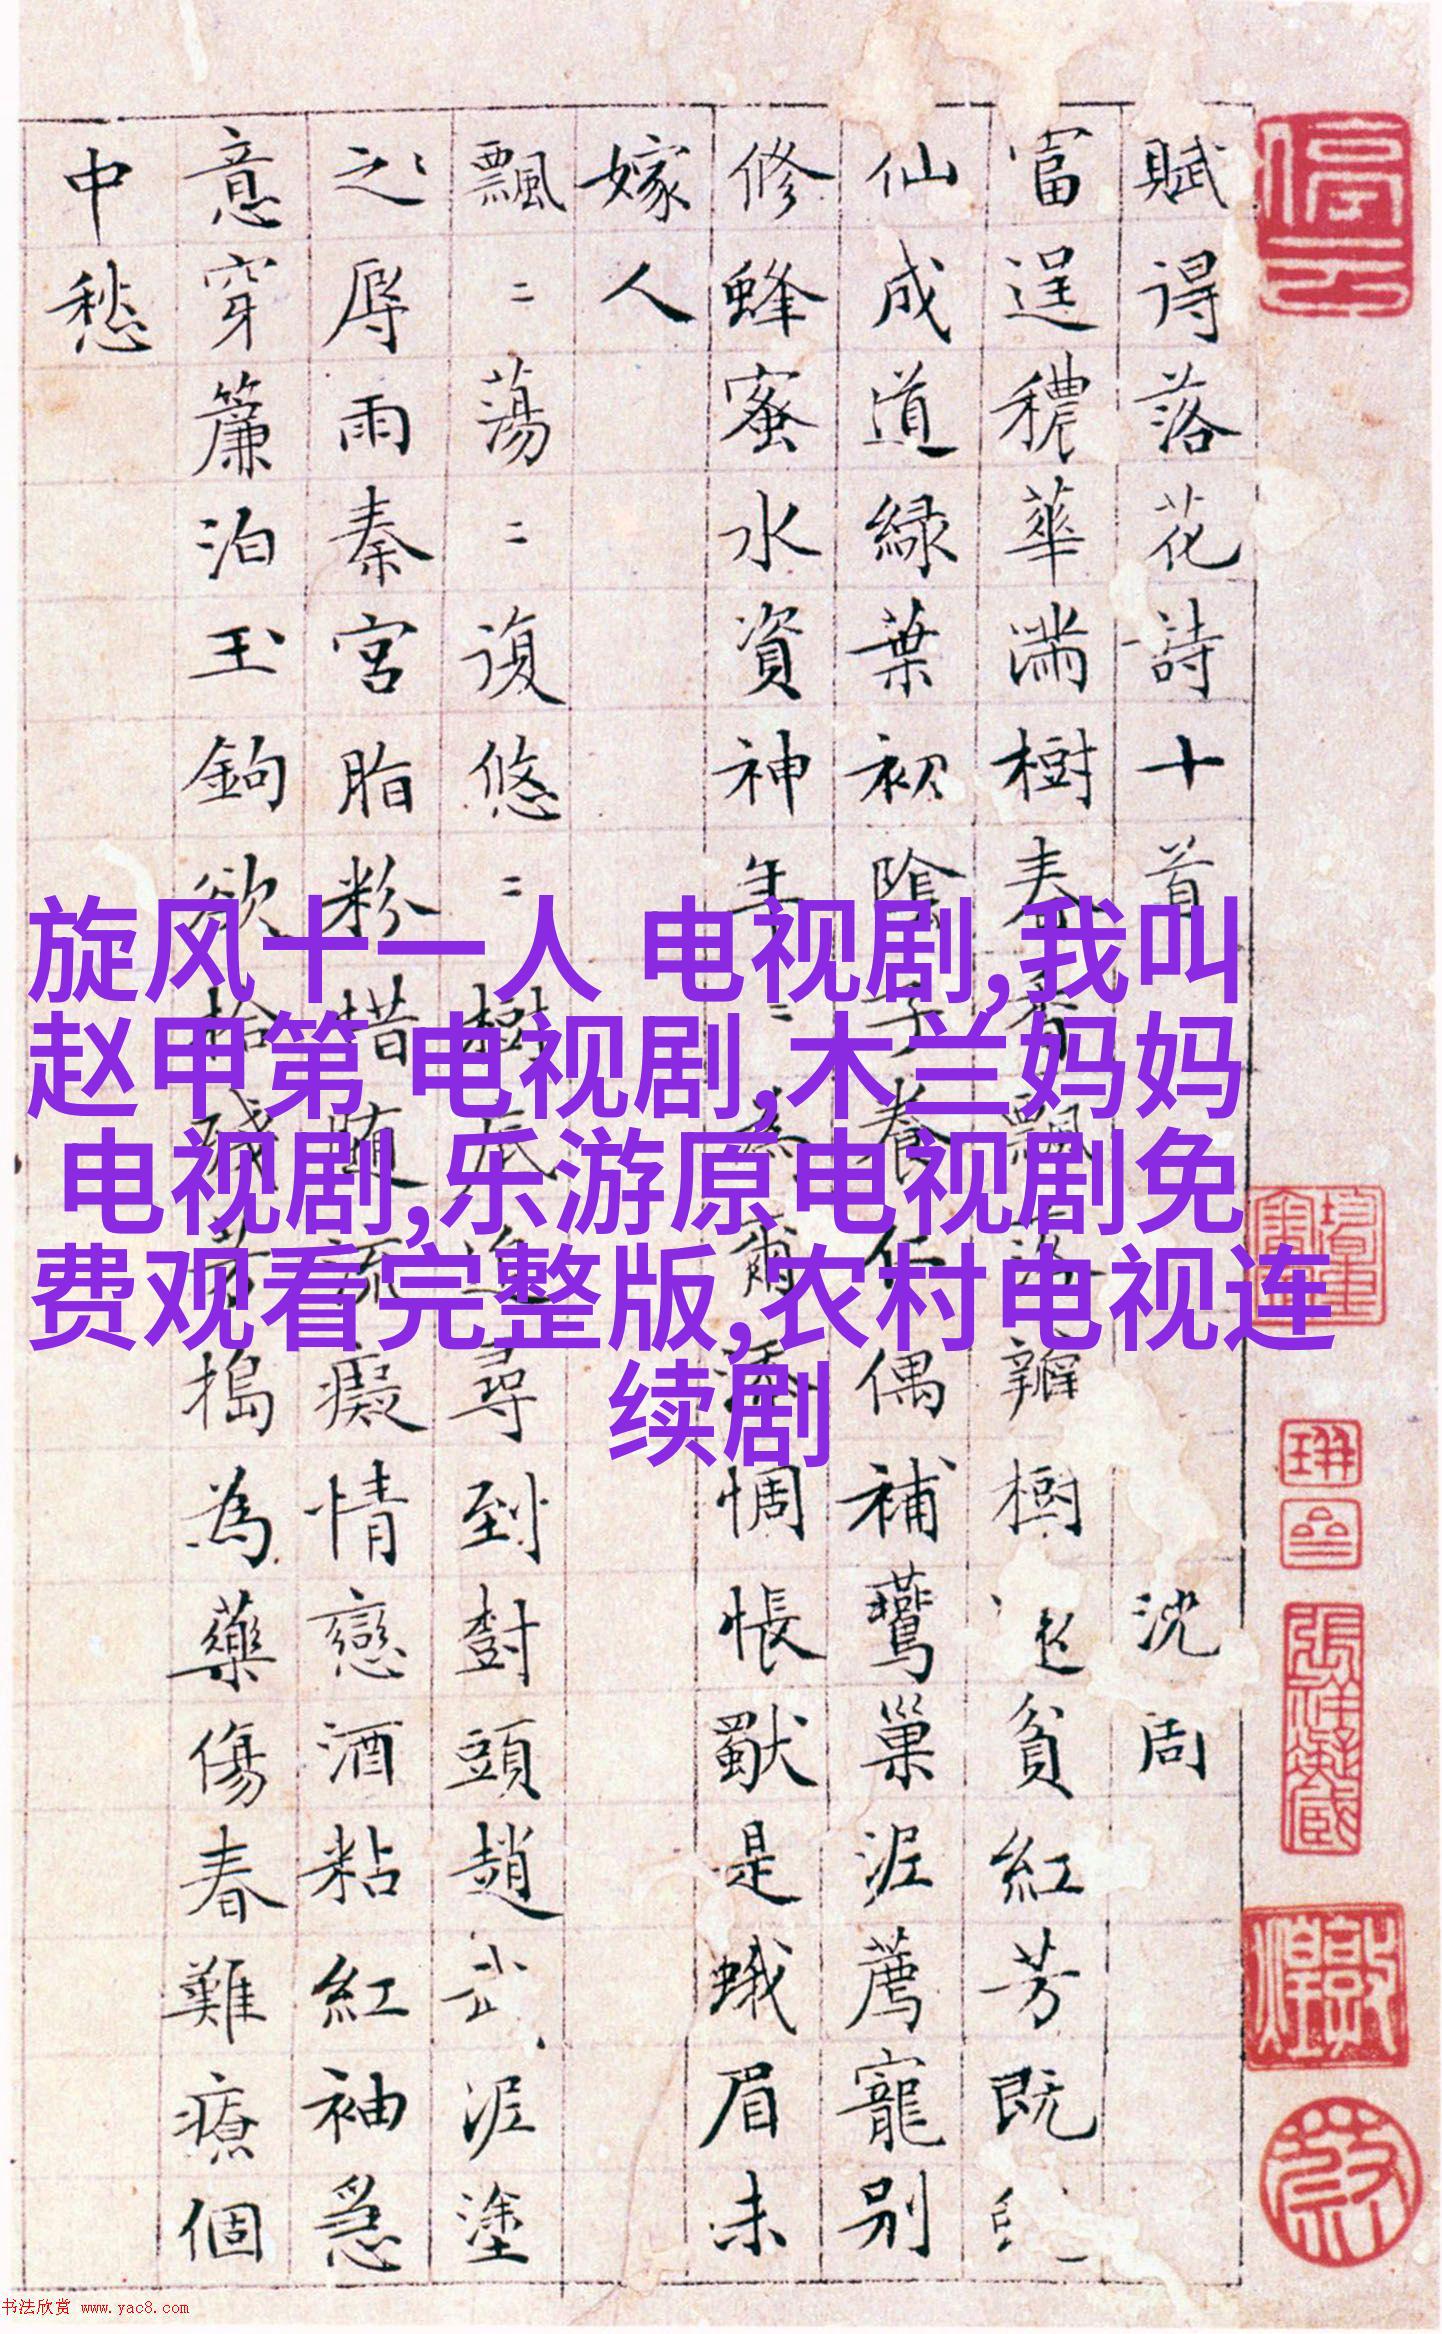 賦得落花詩十首 沈周
富逞穠華滿樹春香飄落瓣樹貧紅芳既
仙成道綠葉初陰子養仁偶補鶯巢泥薦寵別
修蜂蜜水資神年〻為爾添惆悵是蛾眉未
嫁人
飄〻蕩〻復悠〻樹底追尋到樹頭趙武泥塗
之辱雨秦宮脂粉惜隨流癡情戀酒粘紅袖急
意穿簾泊玉鉤欲拾殘芳搗為藥傷春難療個
中愁
旋风十一人 电视剧,我叫
赵甲第 电视剧,木兰妈妈
电视剧,乐游原电视剧免
费观看完整版,农村电视连
续剧
书法欣赏 www.yac8.com